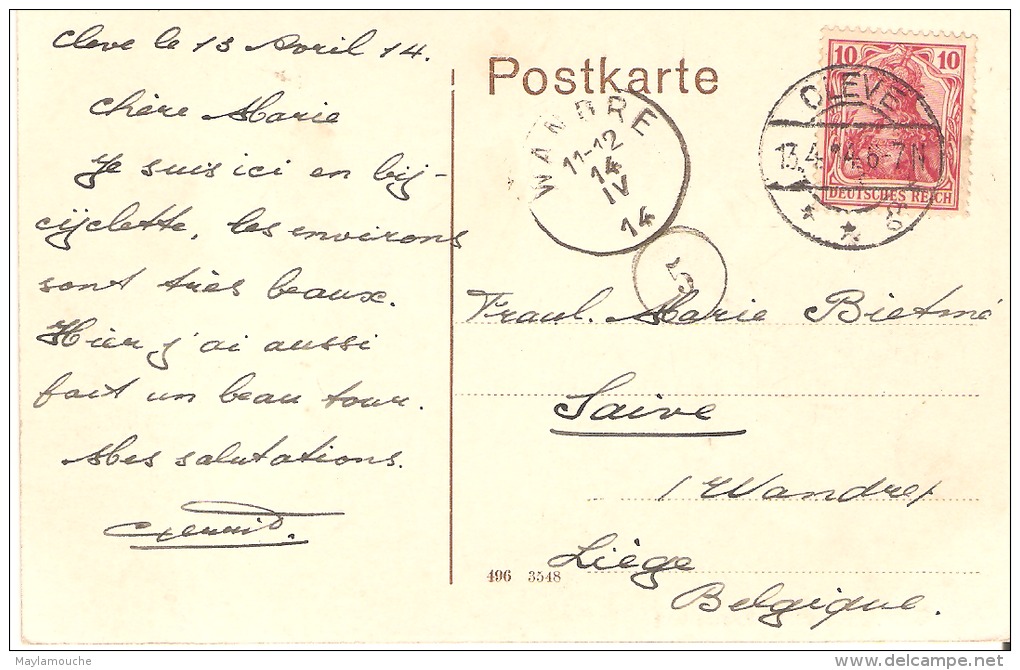 Cleve le 13 Avril 14.
Chère Marie
Je suis ici en bij-
cijclette, les environs
sont très beaux.
Hier j'ai aussi
fait un beau tour.
Mes salutations.
Postkarte
WANDRE
11-12
14
IV
14
5
10 10
DEUTSCHES REICH
CLEVE
13.4.14.6-7N
* * g
Fraul. Marie Bietmé
Saive
(Wandre)
Liège
Belgique.
496 3548
Maylamouche
delcampe.net